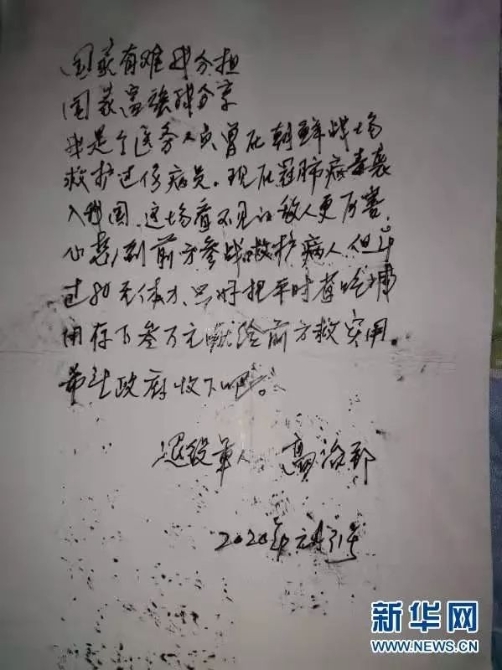 国家有难我分担
国家富强我分享
我是个医务人员曾在朝鲜战场
救护过伤病员。现在冠肺病毒袭
入我国。这场看不见的敌人更厉害
心想到前方参战救护病人但年
过80无体力只好把平时省吃
用存下叁万元献给前方救实用。
希望政府收下吧。
退役军人 高治郡
2020年元月31号
新华网
WWW.NEWS.CN